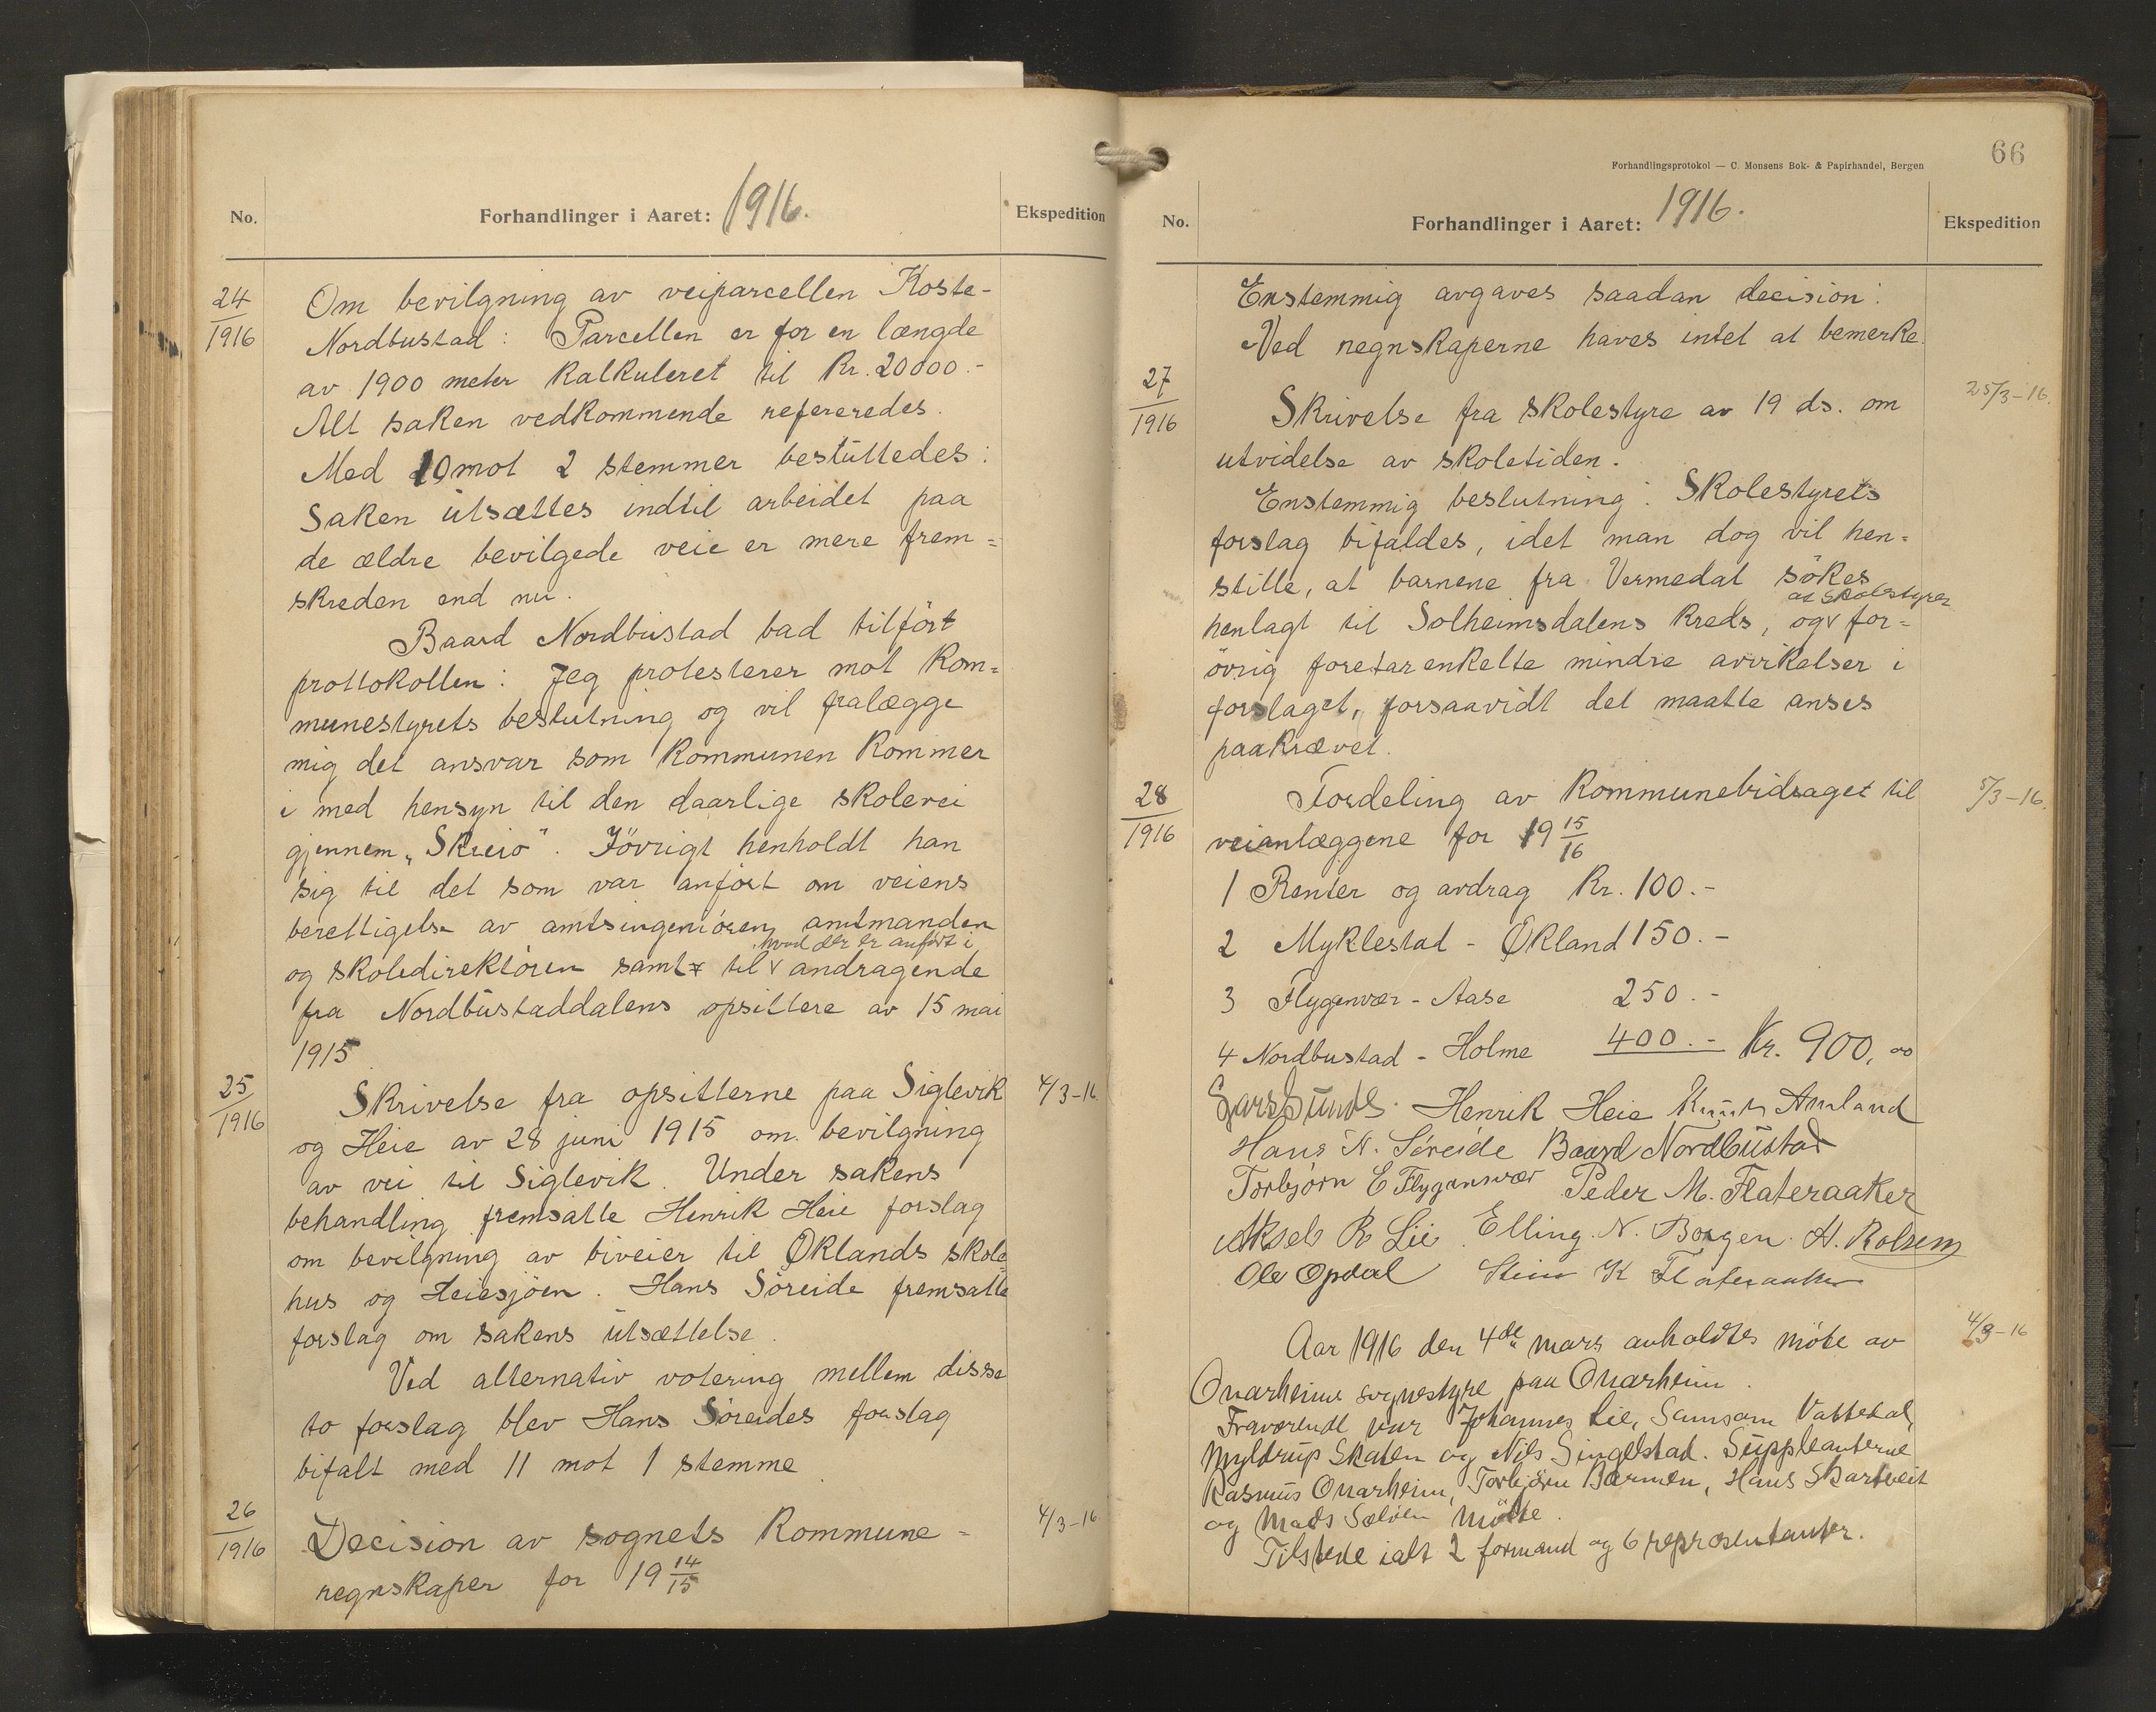 No. Forhandlinger i Aaret: 1916. Ekspedition
24/1916 Om bevilgning av veiparcellen Koste-
Nordbustad: Parcellen er for en længde
av 1900 meter kalkuleret til Kr. 20000.-
Alt saken vedkommende refereredes.
Med 10 mot 2 stemmer besluttedes:
Saken utsættes indtil arbeidet paa
de ældre bevilgede veie er mere frem=
skreden end nu.
Baard Nordbustad bad tilført
prottokollen: Jeg protesterer mot kom=
munestyrets beslutning og vil fralægge
mig det ansvar som kommunen kommer
i med hensyn til den daarlige skolevei
gjennem „Skreio". Iövrigt henholdt han
sig til det som var anført om veiens
berettigelse av amtsingeniören, amtmanden
hvad der er anført i
og skoledirektören samt til v andragende
fra Nordbustaddalens opsittere av 15 mai
1915
25/1916 Skrivelse fra opsitterne paa Siglevik 4/3-16
og Heie av 28 juni 1915 om bevilgning
av vei til Siglevik. Under sakens
behandling fremsatte Henrik Heie forslag
om bevilgning av biveier til Øklands skole
hus og Heiesjöen. Hans Söreide fremsatte
forslag om sakens utsættelse.
Ved alternativ votering mellem disse
to forslag blev Hans Söreides forslag
bifalt med 11 mot 1 stemme
26/1916 Decision av sognets kommune= 4/3-16
regnskaper for 19 14/15
66
Forhandlingsprotokol — C. Monsens Bok- & Papirhandel, Bergen
No. Forhandlinger i Aaret: 1916. Ekspedition
Enstemmig avgaves saadan decision:
Ved regnskaperne haves intet at bemerke.
27/1916 Skrivelse fra skolestyre av 19 ds. om 25/3-16.
utvidelse av skoletiden.
Enstemmig beslutning: Skolestyrets
forslag bifaldes, idet man dog vil hen=
stille, at barnene fra Vermedal sökes
at skolestyret
henlagt til Solheimsdalens kreds, og v for=
övrig foretar enkelte mindre avvikelser i
forslaget, forsaavidt det maatte anses
paakrævet.
28/1916 Fordeling av kommunebidraget til 5/3-16.
veianlæggene for 19 15/16
1 Renter og avdrag Kr. 100.-
2 Myklestad - Økland 150.-
3 Flygenvær - Aase 250.-
4 Nordbustad - Holme 400.- Kr. 900,00
Lars Sunde. Henrik Heie Knut Amland
Hans N. Söreide Baard Nordbustad
Torbjörn E Flygansvær Peder M. Flateraaker
Aksel R Lie Elling N. Borgen H. Rolsem
Ole Opdal Stein K Flateraaker
Aar 1916 den 4de mars anholdtes möte av 4/3-16
Onarheims sognestyre paa Onarheim.
Fraværende var Johannes Lie, Samson Vattedal,
Myldrup Skaten og Nils Singelstad. Suppleanterne
Rasmus Onarheim, Torbjörn Bærmen, Hans Skartveit
og Mads Sælöen mötte.
Tilstede ialt 2 formænd og 6 repræsentanter.